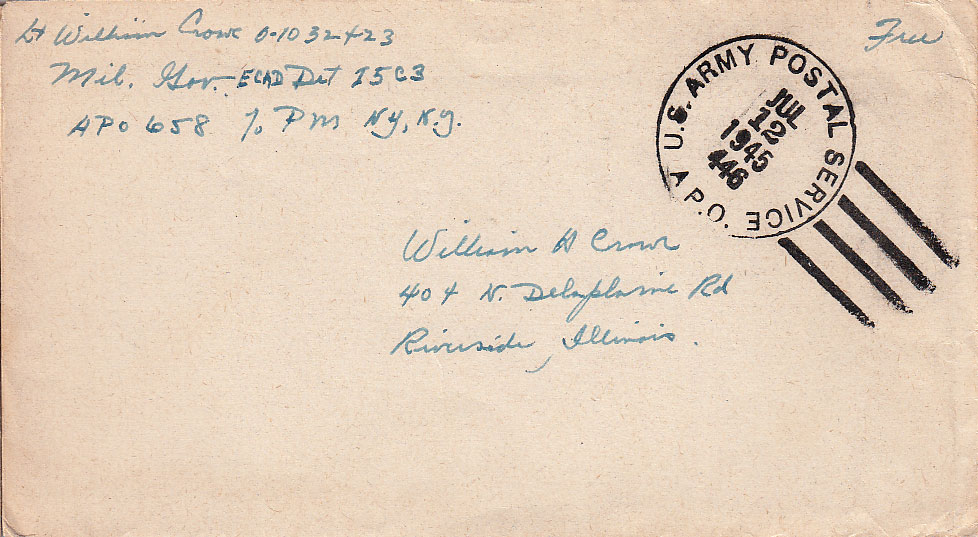 Lt William Crowe O-1032423
Mil. Gov. ECAD Det I5C3
APO 658 % PM NY, N.Y.
Free
U.S. ARMY POSTAL SERVICE
A.P.O.
JUL
12
1945
446
William H Crowe
404 N. Delaplaine Rd
Riverside, Illinois.